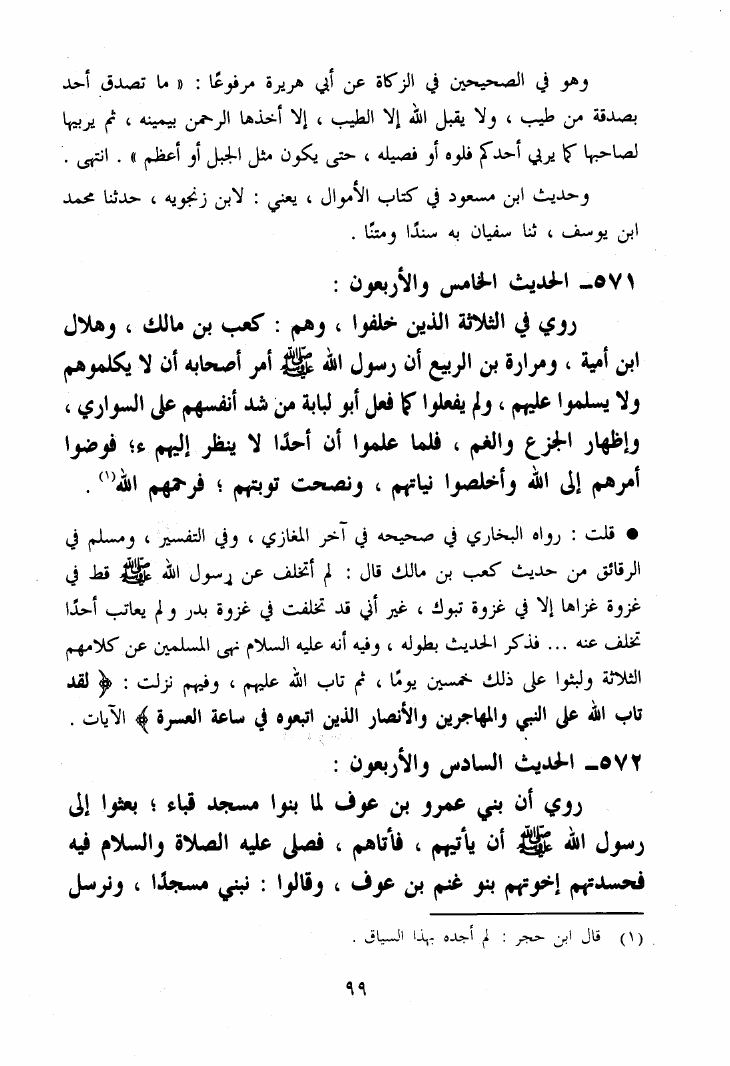 وهو في الصحيحين في الزكاة عن أبي هريرة مرفوعًا : « ما تصدق أحد
بصدقة من طيب ، ولا يقبل الله إلا الطيب ، إلا أخذها الرحمن بيمينه ، ثم يربيها
لصاحبها كما يربي أحدكم فلوه أو فصيله ، حتى يكون مثل الجبل أو أعظم » . انتهى .
وحديث ابن مسعود في كتاب الأموال ، يعني : لابن زنجويه ، حدثنا محمد
ابن يوسف ، ثنا سفيان به سندًا ومتنًا .
٥٧١ـ الحديث الخامس والأربعون :
روي في الثلاثة الذين خلفوا ، وهم : كعب بن مالك ، وهلال
ابن أمية ، ومرارة بن الربيع أن رسول الله ﷺ أمر أصحابه أن لا يكلموهم
ولا يسلموا عليهم ، ولم يفعلوا كما فعل أبو لبابة من شد أنفسهم على السواري ،
وإظهار الجزع والغم ، فلما علموا أن أحدًا لا ينظر إليهم ء؛ فوضوا
أمرهم إلى الله وأخلصوا نياتهم ، ونصحت توبتهم ؛ فرحمهم الله(١) .
● قلت : رواه البخاري في صحيحه في آخر المغازي ، وفي التفسير ، ومسلم في
الرقائق من حديث كعب بن مالك قال : لم أتخلف عن رسول الله ﷺ قط في
غزوة غزاها إلا في غزوة تبوك ، غير أني قد تخلفت في غزوة بدر ولم يعاتب أحدًا
تخلف عنه ... فذكر الحديث بطوله ، وفيه أنه عليه السلام نهى المسلمين عن كلامهم
الثلاثة ولبثوا على ذلك خمسين يومًا ، ثم تاب الله عليهم ، وفيهم نزلت : ﴿ لقد
تاب الله على النبي والمهاجرين والأنصار الذين اتبعوه في ساعة العسرة ﴾ الآيات .
٥٧٢ـ الحديث السادس والأربعون :
روي أن بني عمرو بن عوف لما بنوا مسجد قباء ؛ بعثوا إلى
رسول الله ﷺ أن يأتيهم ، فأتاهم ، فصلى عليه الصلاة والسلام فيه
فحسدتهم إخوتهم بنو غنم بن عوف ، وقالوا : نبني مسجدًا ، ونرسل
(١) قال ابن حجر : لم أجده بهذا السياق .
٩٩